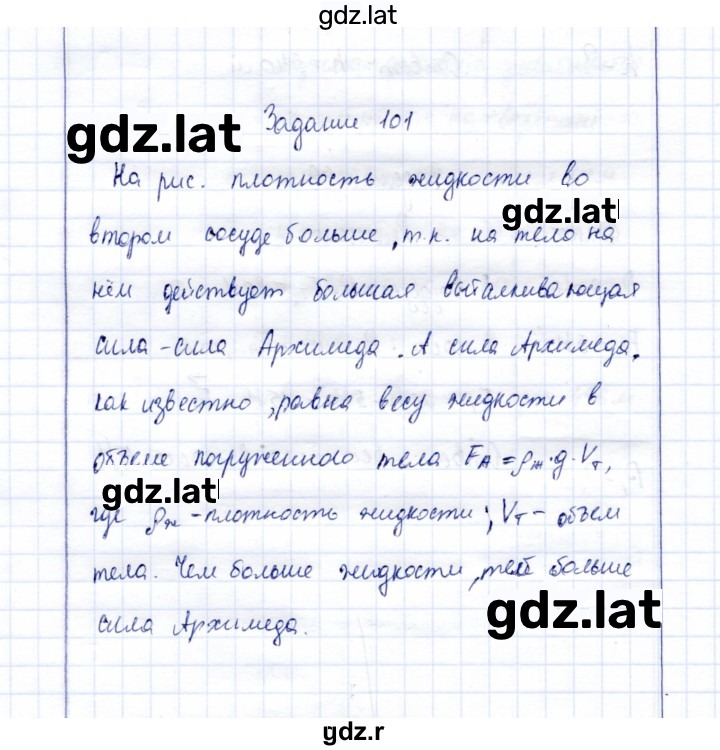 gdz.lat
gdz.lat
Задание 101
На рис. плотность жидкости во
gdz.lat
втором сосуде больше, т.к. на тело на
нём действует большая выталкивающая
сила - сила Архимеда. А сила Архимеда,
как известно, равна весу жидкости в
объеме погруженного тела F_A = ρ_ж · g · V_т,
gdz.lat
где ρ_ж - плотность жидкости; V_т - объем
тела. Чем больше жидкости, тем больше
gdz.lat
сила Архимеда.
gdz.r